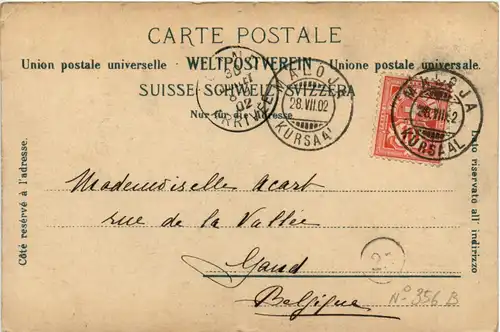 CARTE POSTALE
Union postale universelle WELTPOSTVEREIN Unione postale universale.
SUISSE SCHWEIZ SVIZZERA
Nur für die Adresse.
MALOJA
28.VII.02
KURSAAL
MALOJA
28.VII.02
KURSAAL
Côté resérvé à l'adresse.
Lato riservato all' indirizzo
Mademoiselle Acart
rue de la Vallée
Gand
Belgique
N° 356 B